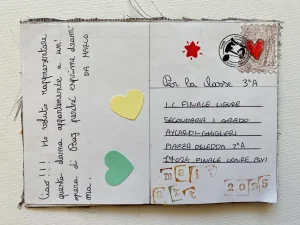 Ciao!!! Ho voluto rappresentare
questa dama appartenente a un
opera di Baj perché esprime dram
ma.
DA MARCO
Per la classe 3ªA
I.C. FINALE LIGURE
SECONDARIA I GRADO
AYCARDI-GHIGLIERI
PIAZZA DELEDDA 2ªA
17024 FINALE LIGURE
mail
art
2025